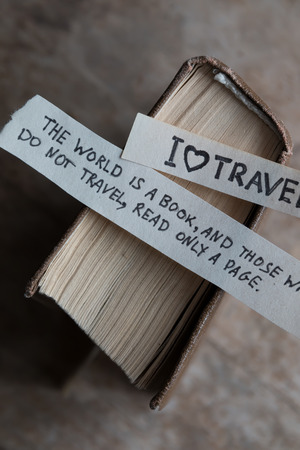 I ♡ TRAVEL
THE WORLD IS A BOOK, AND THOSE W
DO NOT TRAVEL, READ ONLY A PAGE.